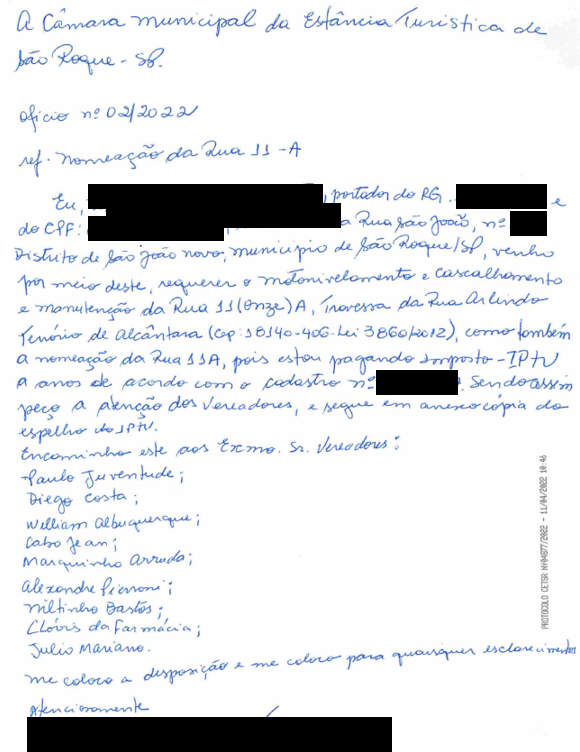 A Câmara Municipal da Estância Turística de
São Roque - SP.
Ofício nº 02/2022
ref. Nomeação da Rua 11 - A
Eu, , portador do RG. e
do CPF: a Rua São João, nº
Distrito de São João novo, município de São Roque/SP, venho
por meio deste, requerer o motonivelamento e cascalhamento
e manutenção da Rua 11 (onze) A, Travessa da Rua Arlindo
Tenório de Alcântara (Cep: 18140-406-Lei 3860/2012), como também
a nomeação da Rua 11A, pois estou pagando imposto - IPTU
a anos de acordo com o cadastro nº . Sendo assim
peço a atenção dos Vereadores, e segue em anexo cópia do
espelho do IPTU.
Encaminho este aos Exmo. Sr. Vereadores:
Paulo Juventude;
Diego Costa;
William Albuquerque;
Cabo Jean;
Marquinho Arruda;
Alexandre Pierroni;
Niltinho Bastos;
Clóvis da Farmácia;
Julio Mariano.
me coloco a disposição e me coloco para quaisquer esclarecimentos
Atenciosamente
PROTOCOLO CETSR 04877/2022 - 11/04/2022 10:46